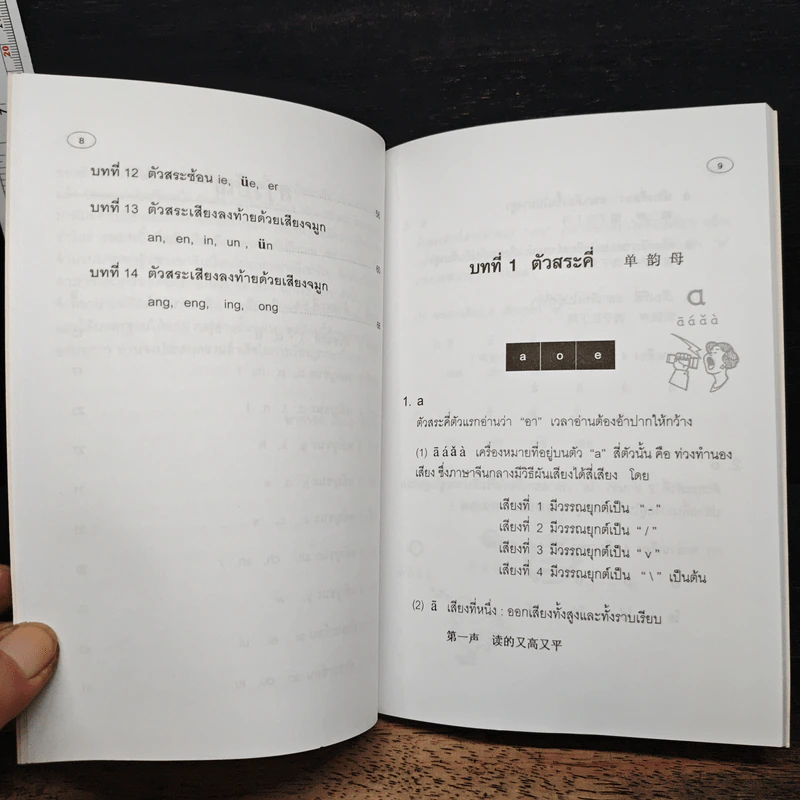 8
บทที่ 12 ตัวสระซ้อน ie, üe, er
56
บทที่ 13 ตัวสระเสียงลงท้ายด้วยเสียงจมูก
an, en, in, un , ün
60
บทที่ 14 ตัวสระเสียงลงท้ายด้วยเสียงจมูก
ang, eng, ing, ong
9
บทที่ 1 ตัวสระคี่ 单 韵 母
ɑ
ā á ǎ à
a o e
1. a
ตัวสระคี่ตัวแรกอ่านว่า "อา" เวลาอ่านต้องอ้าปากให้กว้าง
(1) ā á ǎ à เครื่องหมายที่อยู่บนตัว "a" สี่ตัวนั้น คือ ท่วงทำนอง
เสียง ซึ่งภาษาจีนกลางมีวิธีผันเสียงได้สี่เสียง โดย
เสียงที่ 1 มีวรรณยุกต์เป็น " - "
เสียงที่ 2 มีวรรณยุกต์เป็น " / "
เสียงที่ 3 มีวรรณยุกต์เป็น " v "
เสียงที่ 4 มีวรรณยุกต์เป็น " \ " เป็นต้น
(2) ā เสียงที่หนึ่ง : ออกเสียงทั้งสูงและทั้งราบเรียบ
第一声 读的又高又平
20